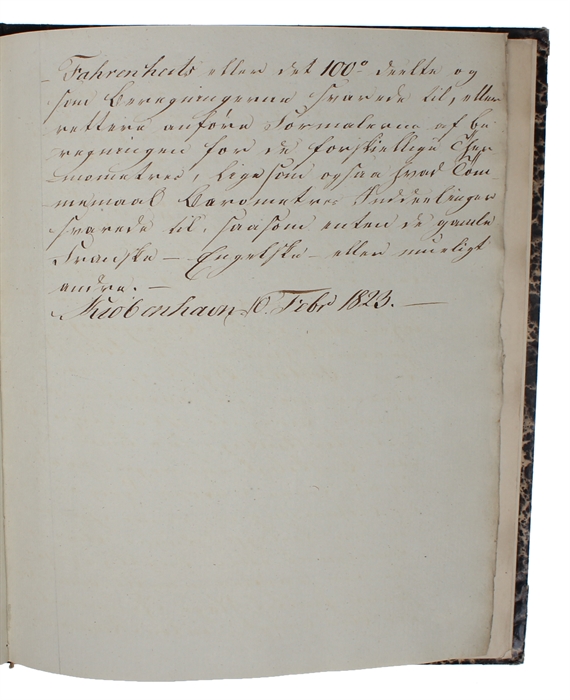 Fahrenheits eller det 100° deelte og
som Beregningerne svarede til, eller
rettere anføre Formalerne af be
regningen for de forskiellige Ther
mometre, ligesom ogsaa hvad Tom
memaal Barometre Inddeelinger
svarede til, saasom enten de gamle
Franske — Engelske — eller mueligt
andre. —
Kiøbenhavn Febr 1823. —